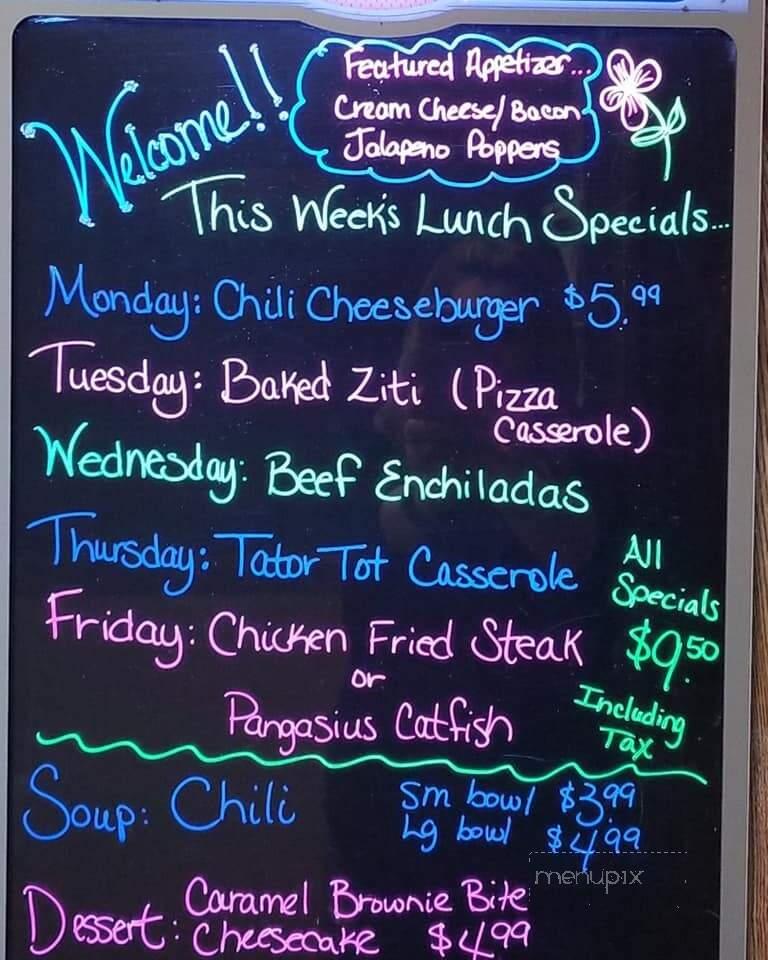 Welcome!!
Featured Appetizer...
Cream Cheese/Bacon
Jalapeno Poppers
This Week's Lunch Specials...
Monday: Chili Cheeseburger $5.99
Tuesday: Baked Ziti (Pizza
Casserole)
Wednesday: Beef Enchiladas
Thursday: Tator Tot Casserole
Friday: Chicken Fried Steak
or
Pangasius Catfish
All
Specials
$9.50
Including
Tax
Soup: Chili
Sm bowl $3.99
Lg bowl $4.99
menupix
Dessert: Caramel Brownie Bite
Cheesecake $4.99